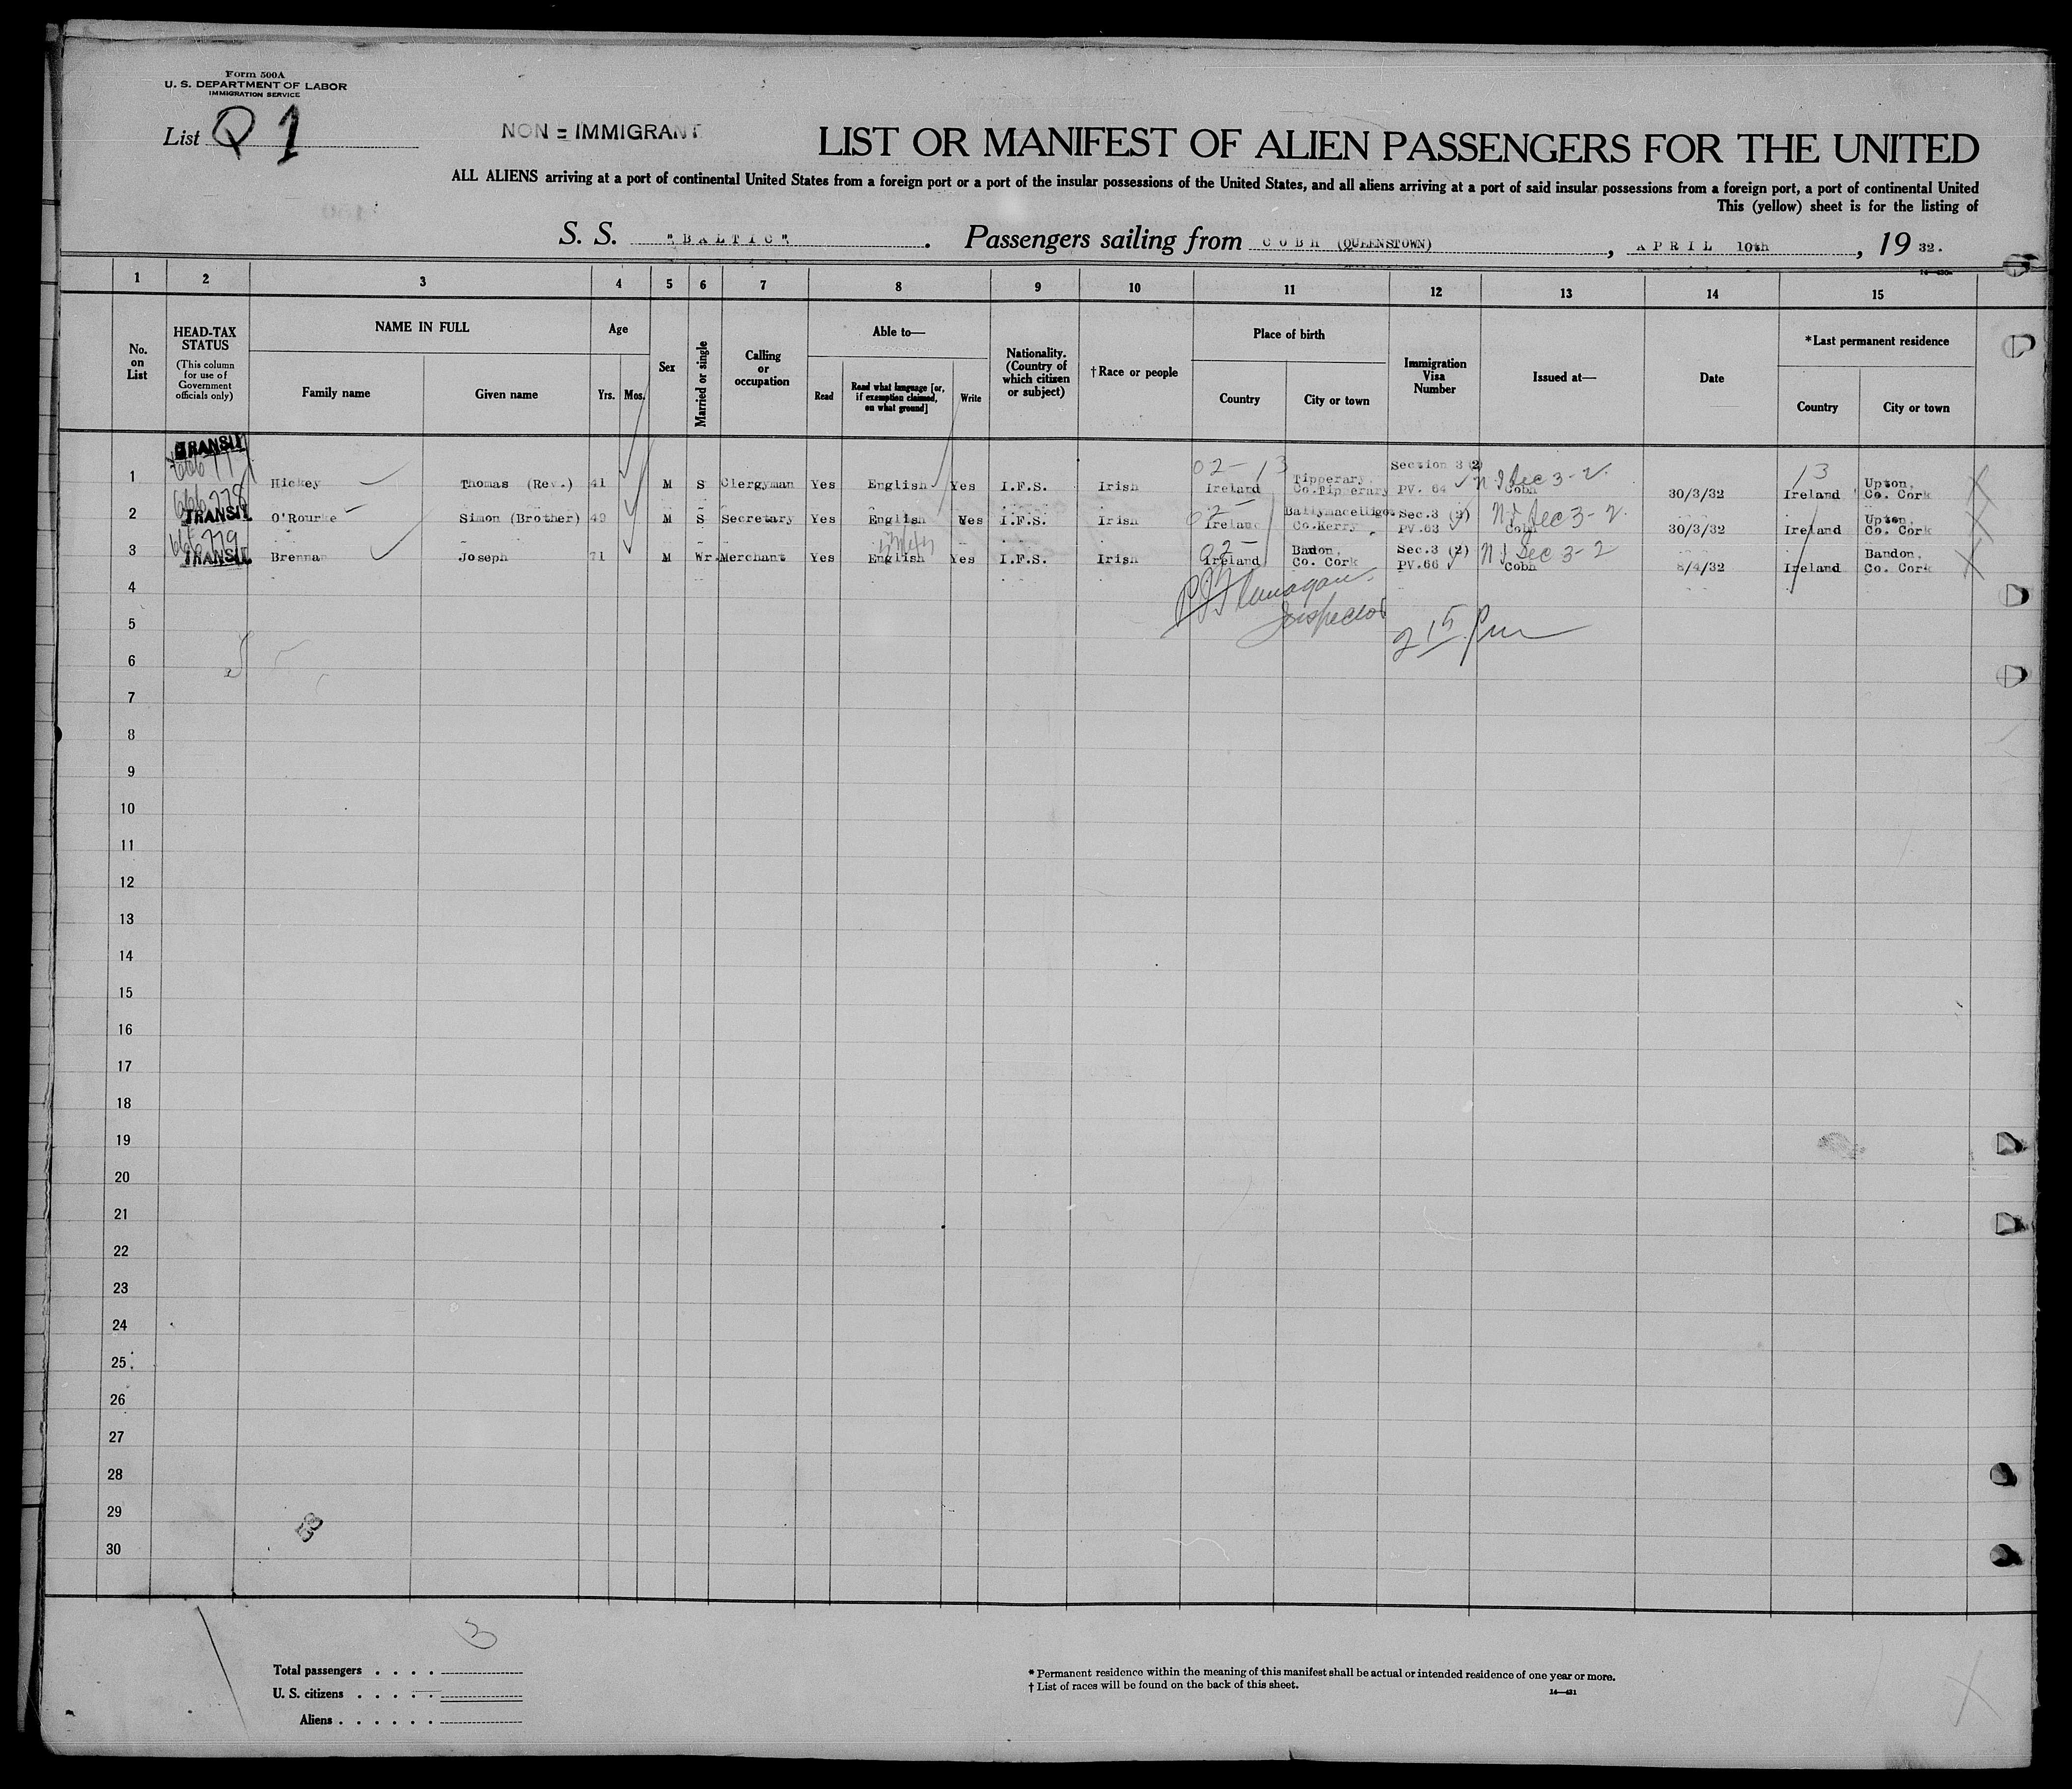 Form 500A
U. S. DEPARTMENT OF LABOR
IMMIGRATION SERVICE
List Q 1
NON = IMMIGRANT
LIST OR MANIFEST OF ALIEN PASSENGERS FOR THE UNITED
ALL ALIENS arriving at a port of continental United States from a foreign port or a port of the insular possessions of the United States, and all aliens arriving at a port of said insular possessions from a foreign port, a port of continental United
This (yellow) sheet is for the listing of
S. S. "BALTIC". Passengers sailing from COBH (QUEENSTOWN), APRIL 10th, 19 32.
1 2 3 4 5 6 7 8 9 10 11 12 13 14 15
No. on List
HEAD-TAX STATUS
(This column for use of Government officials only)
NAME IN FULL
Family name
Given name
Age
Yrs.
Mos.
Sex
Married or single
Calling or occupation
Able to—
Read
Read what language [or, if exemption claimed, on what ground]
Write
Nationality. (Country of which citizen or subject)
†Race or people
Place of birth
Country
City or town
Immigration Visa Number
Issued at—
Date
*Last permanent residence
Country
City or town
TRANSIT
02- 13 Section 3 (2) N I Sec 3-2. 13
1 Hickey Thomas (Rev.) 41 M S Clergyman Yes English Yes I.F.S. Irish Ireland Tipperary, Co.Tipperary PV. 64 Cobh 30/3/32 Ireland Upton, Co. Cork
666778
TRANSIT
2 O'Rourke Simon (Brother) 49 M S Secretary Yes English Yes I.F.S. Irish 02- Ireland Ballymacelligot Co.Kerry Sec.3 (2) PV.63 N I Sec 3-2. Cobh 30/3/32 Ireland Upton, Co. Cork
666779
TRANSIT
3 Brennan Joseph 71 M Wr. Merchant Yes English Yes I.F.S. Irish 02- Ireland Badon, Co. Cork Sec.3 (2) PV.66 N I Sec 3-2 Cobh 8/4/32 Ireland Bandon, Co. Cork
4
Flanagan
Inspector
5
2 15 Pm
6
7
8
9
10
11
12
13
14
15
16
17
18
19
20
21
22
23
24
25
26
27
28
29
30
3
Total passengers
U. S. citizens
Aliens
* Permanent residence within the meaning of this manifest shall be actual or intended residence of one year or more.
† List of races will be found on the back of this sheet.
14—431